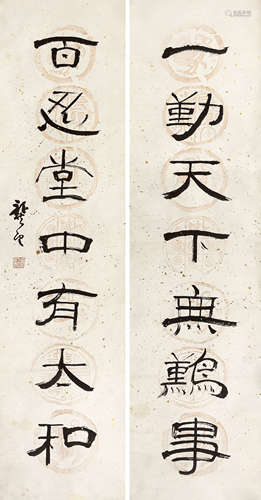 一勤天下無難事
百忍堂中有太和
龔望